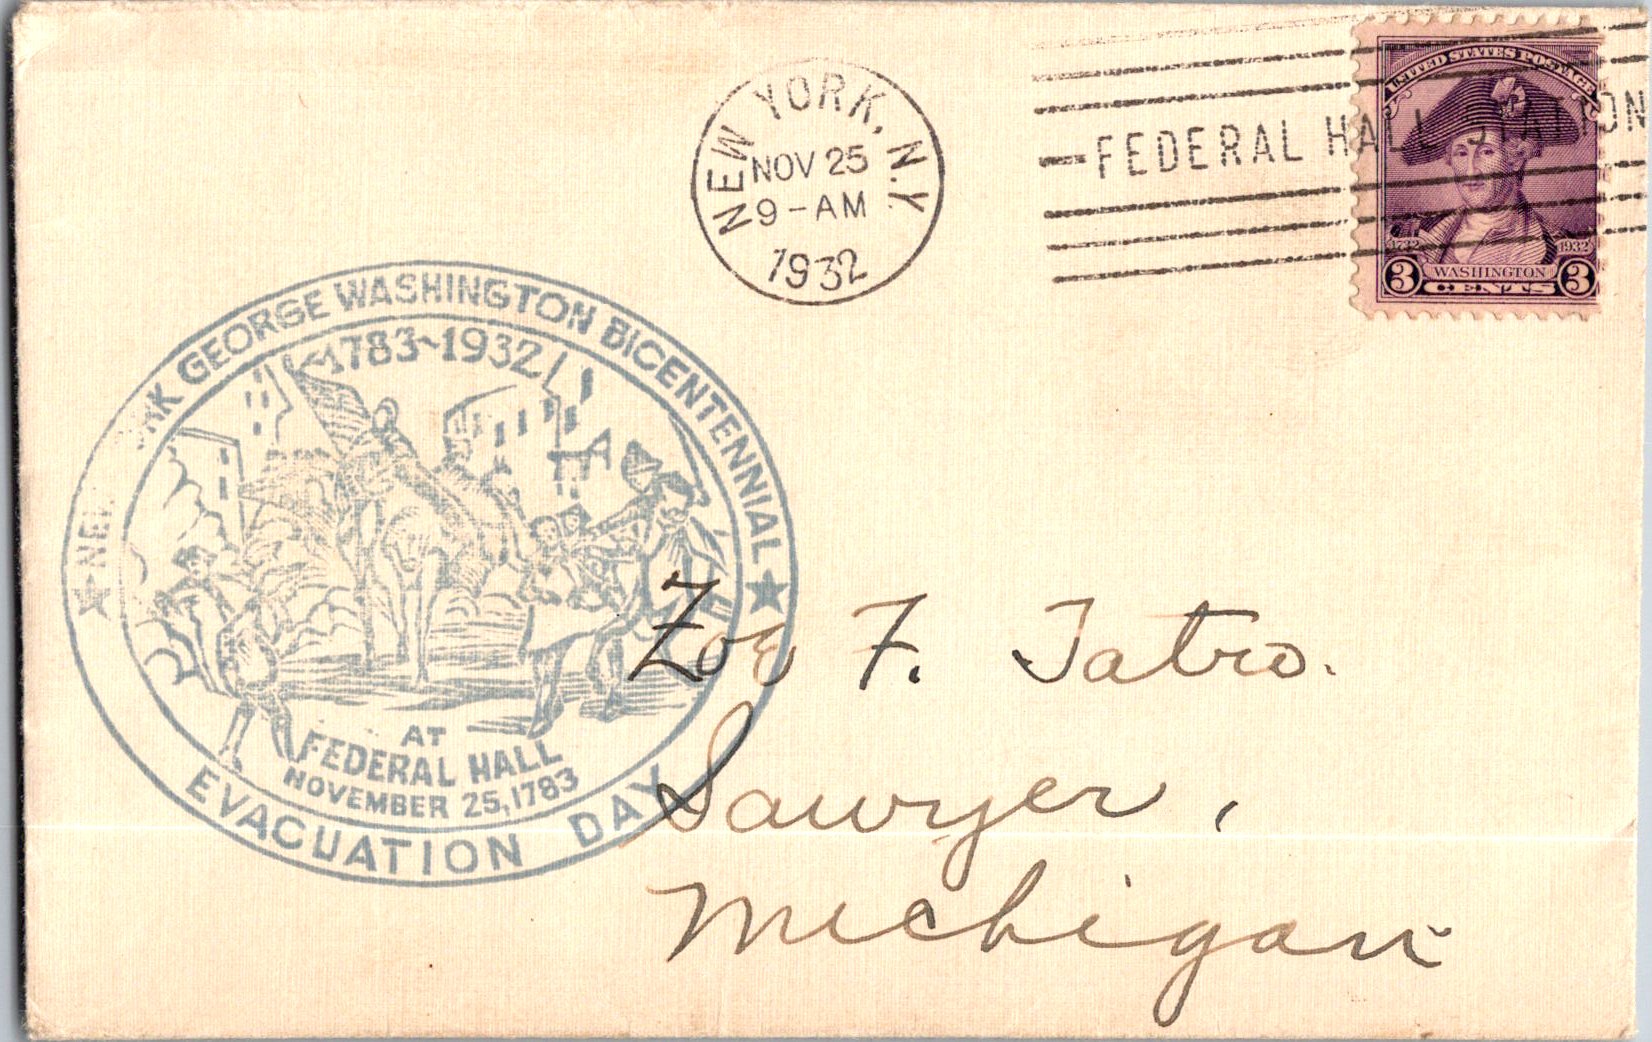 NEW YORK, N.Y.
NOV 25
9-AM
1932
FEDERAL HALL STATION
UNITED STATES POSTAGE
1732 1932
3 WASHINGTON 3
CENTS
GEORGE WASHINGTON BICENTENNIAL
1783~1932
AT
FEDERAL HALL
NOVEMBER 25, 1783
EVACUATION DAY
Zoe F. Tatro.
Sawyer,
Michigan